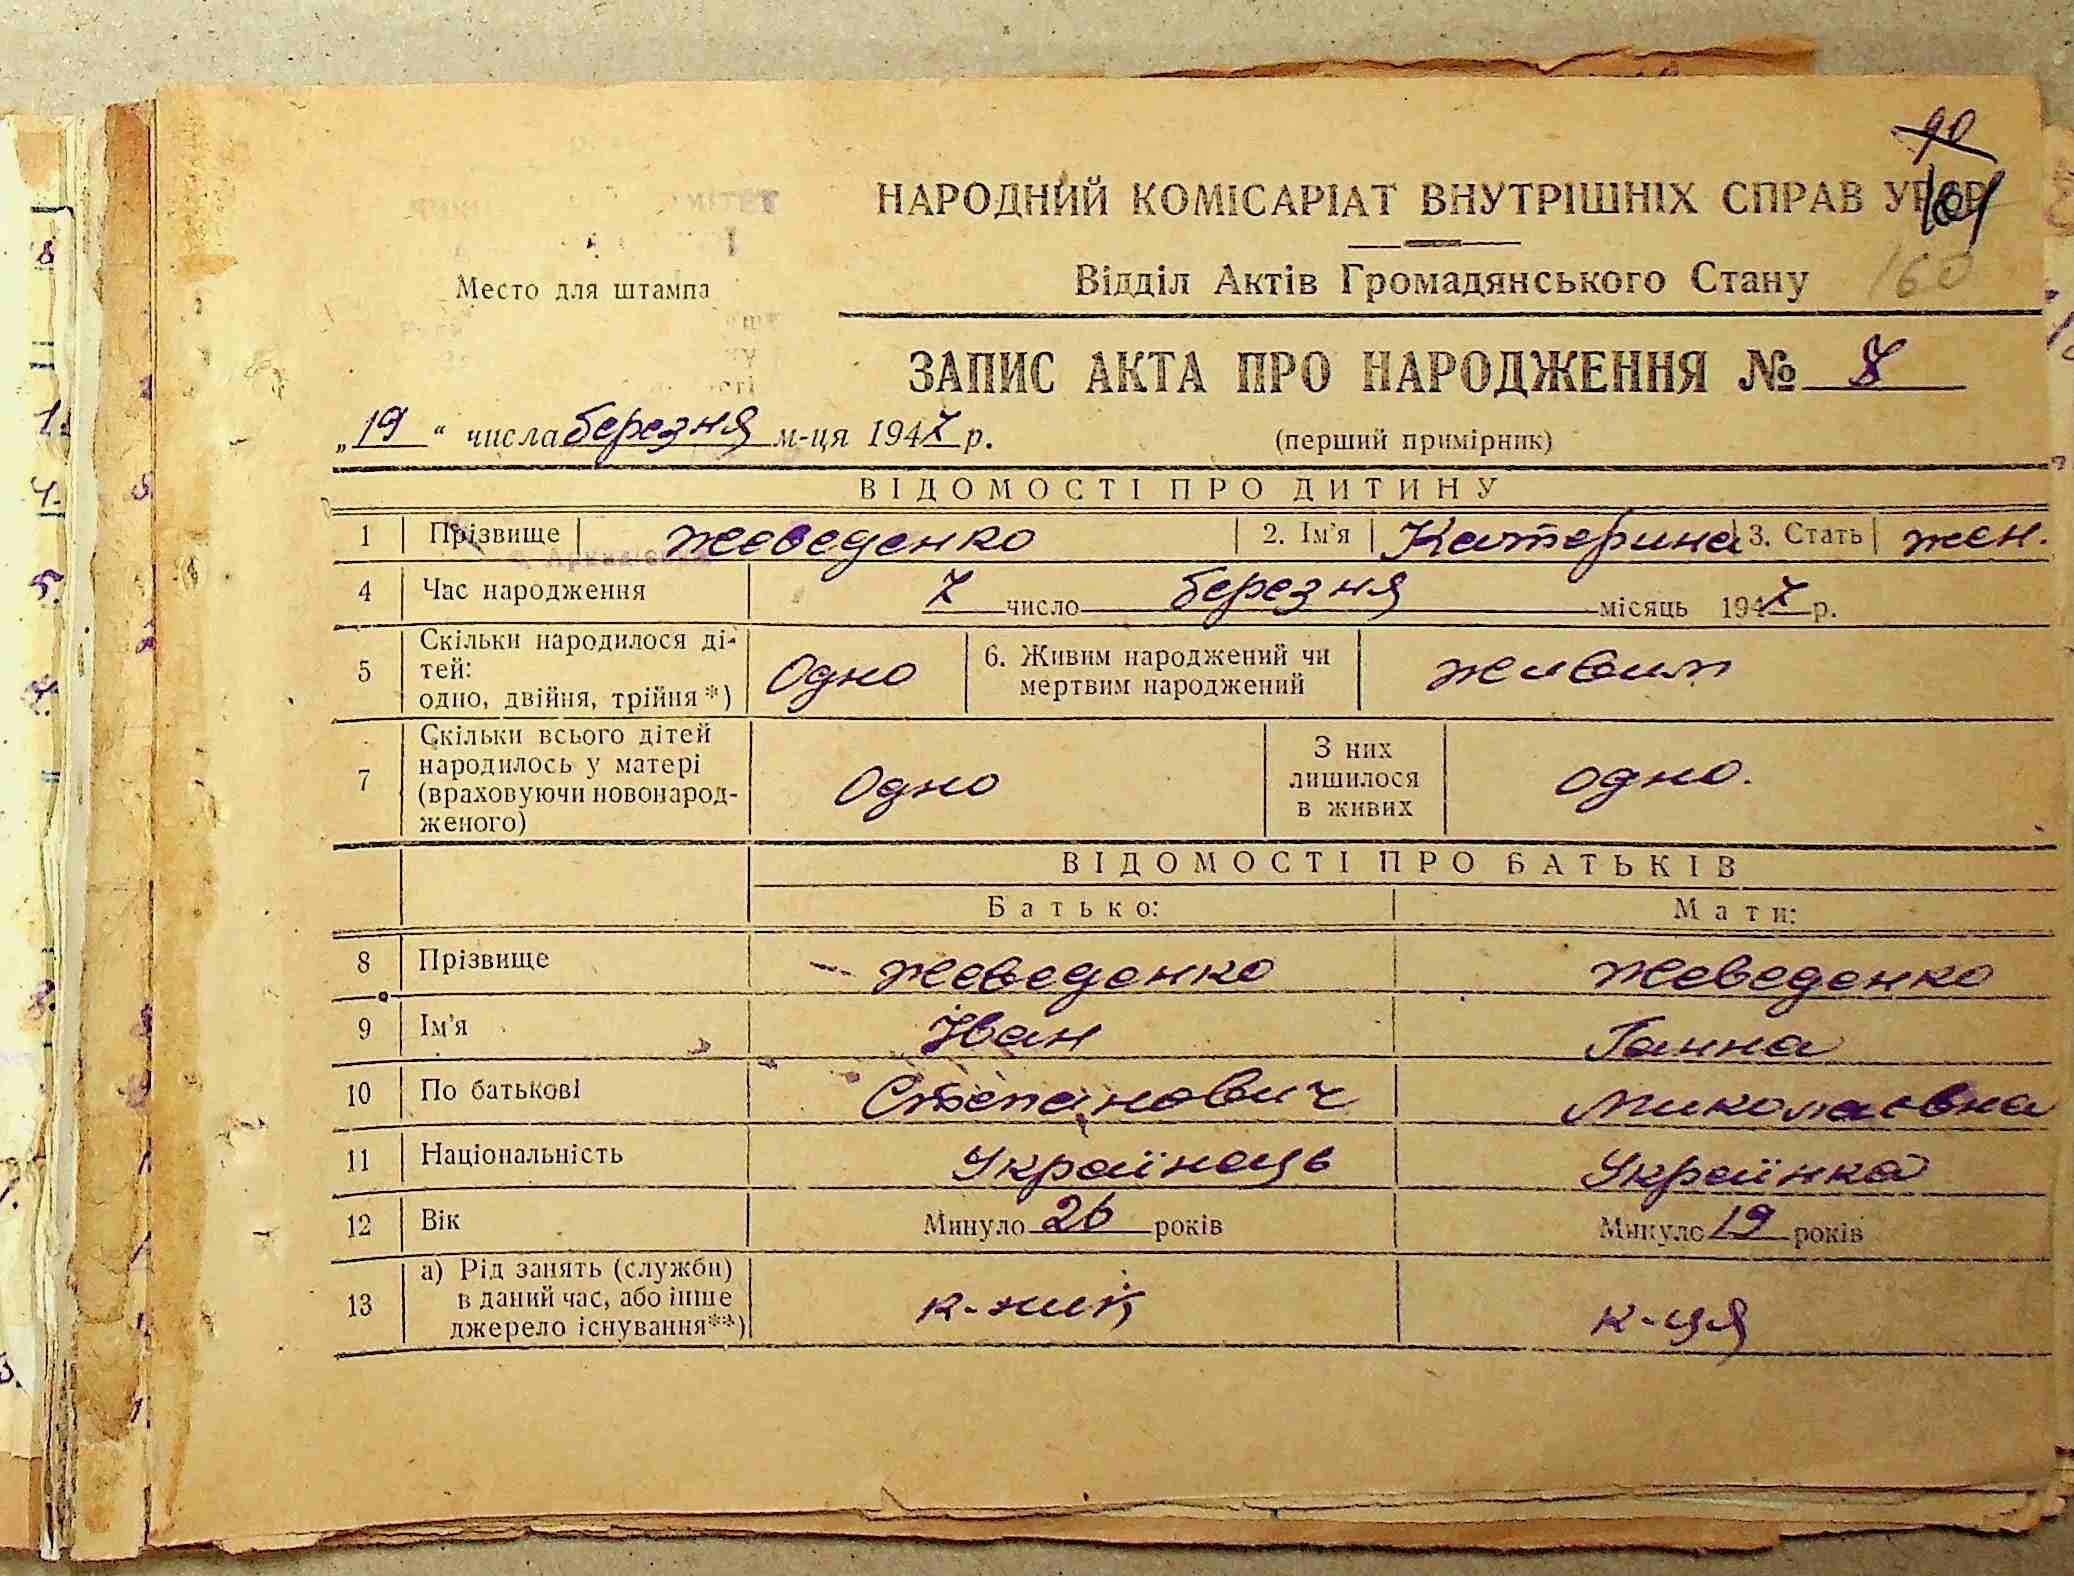 90
НАРОДНИЙ КОМІСАРІАТ ВНУТРІШНІХ СПРАВ УРСР
Відділ Актів Громадянського Стану
160
Место для штампа
ЗАПИС АКТА ПРО НАРОДЖЕННЯ № 8
„19“ числа березня м-ця 1947 р.
(перший примірник)
ВІДОМОСТІ ПРО ДИТИНУ
1 Прізвище Жеведенко 2. Ім'я Катерина 3. Стать жен.
4 Час народження 7 число березня місяць 1947 р.
5 Скільки народилося ді-
тей:
одно, двійня, трійня*) Одно 6. Живим народжений чи
мертвим народжений живим
7 Скільки всього дітей
народилось у матері
(враховуючи новонарод-
женого) Одно З них
лишилося
в живих одно.
ВІДОМОСТІ ПРО БАТЬКІВ
Батько: Мати:
8 Прізвище Жеведенко Жеведенко
9 Ім'я Іван Ганна
10 По батькові Степанович Миколаєвна
11 Національність Українець Українка
12 Вік Минуло 26 років Минуло 19 років
13 а) Рід занять (служби)
в даний час, або інше
джерело існування**) к-ник к-ця